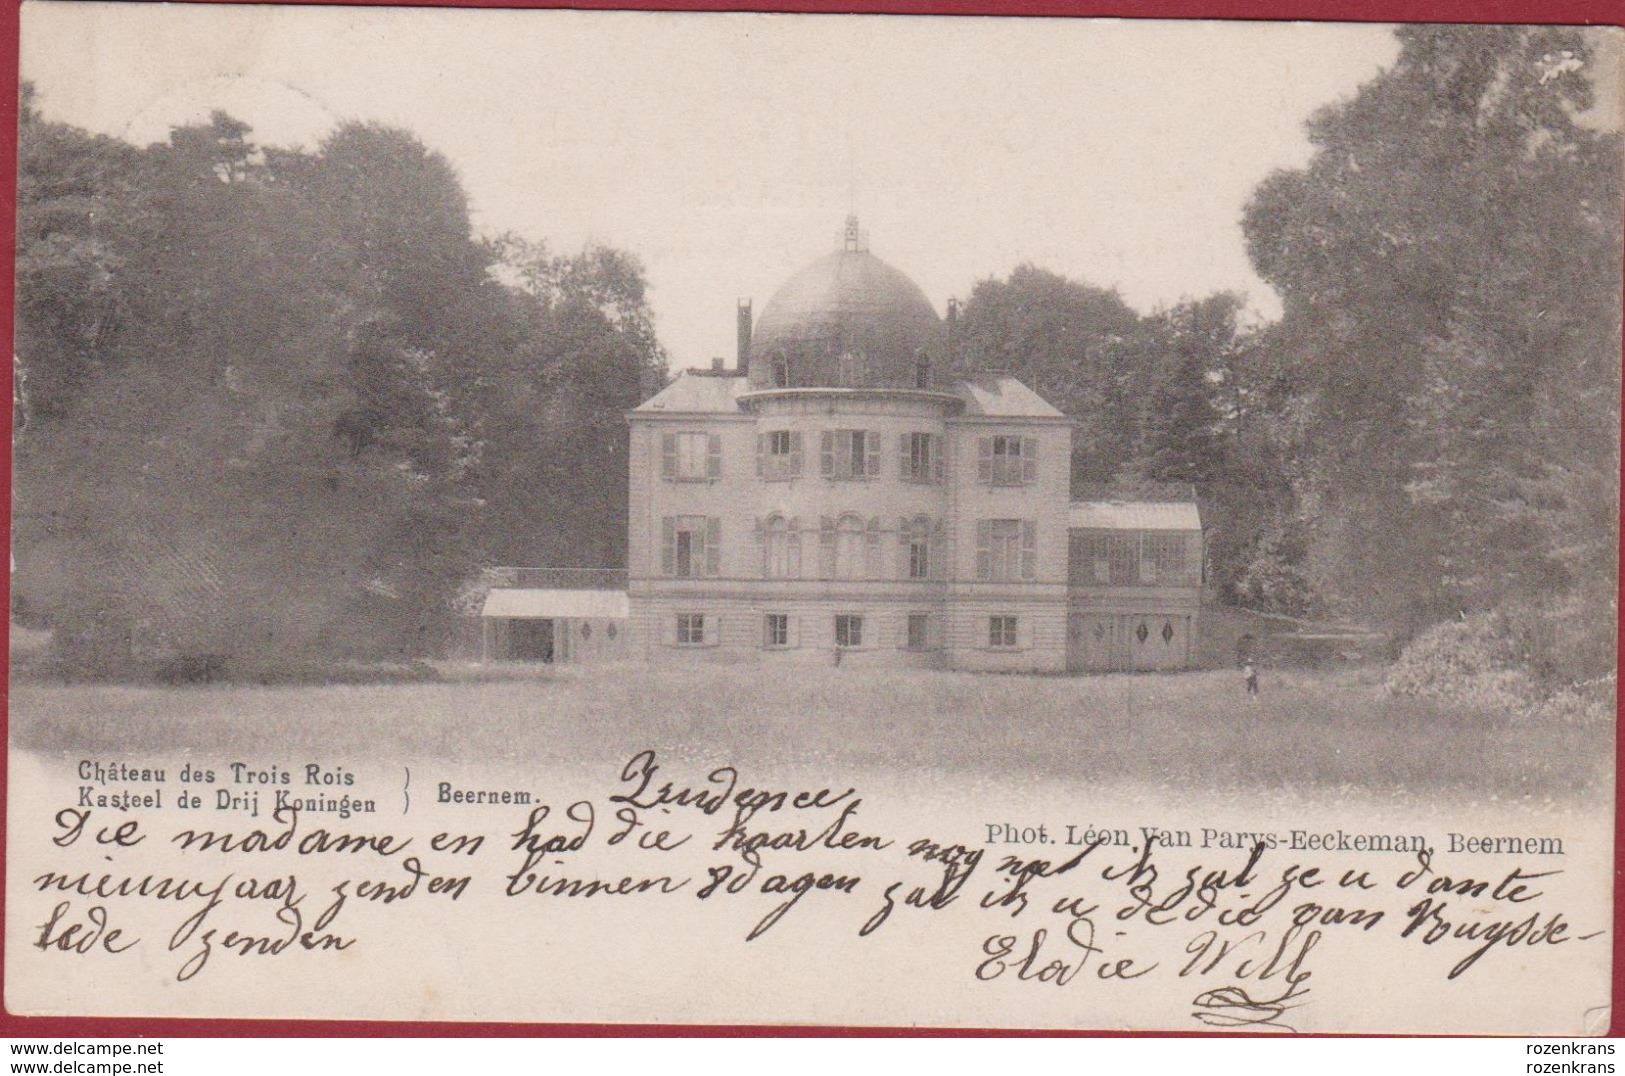 Château des Trois Rois
Kasteel de Drij Koningen
Beernem.
Prudence
Phot. Léon Van Parys-Eeckeman, Beernem
Die madame en had die kaarten nog niet ik zal ze u dante
nieuwjaar zenden binnen 8 dagen zal ik u de die van Ruysse-
lede zenden
Elodie
www.delcampe.net
www.delcampe.net
rozenkrans
rozenkrans